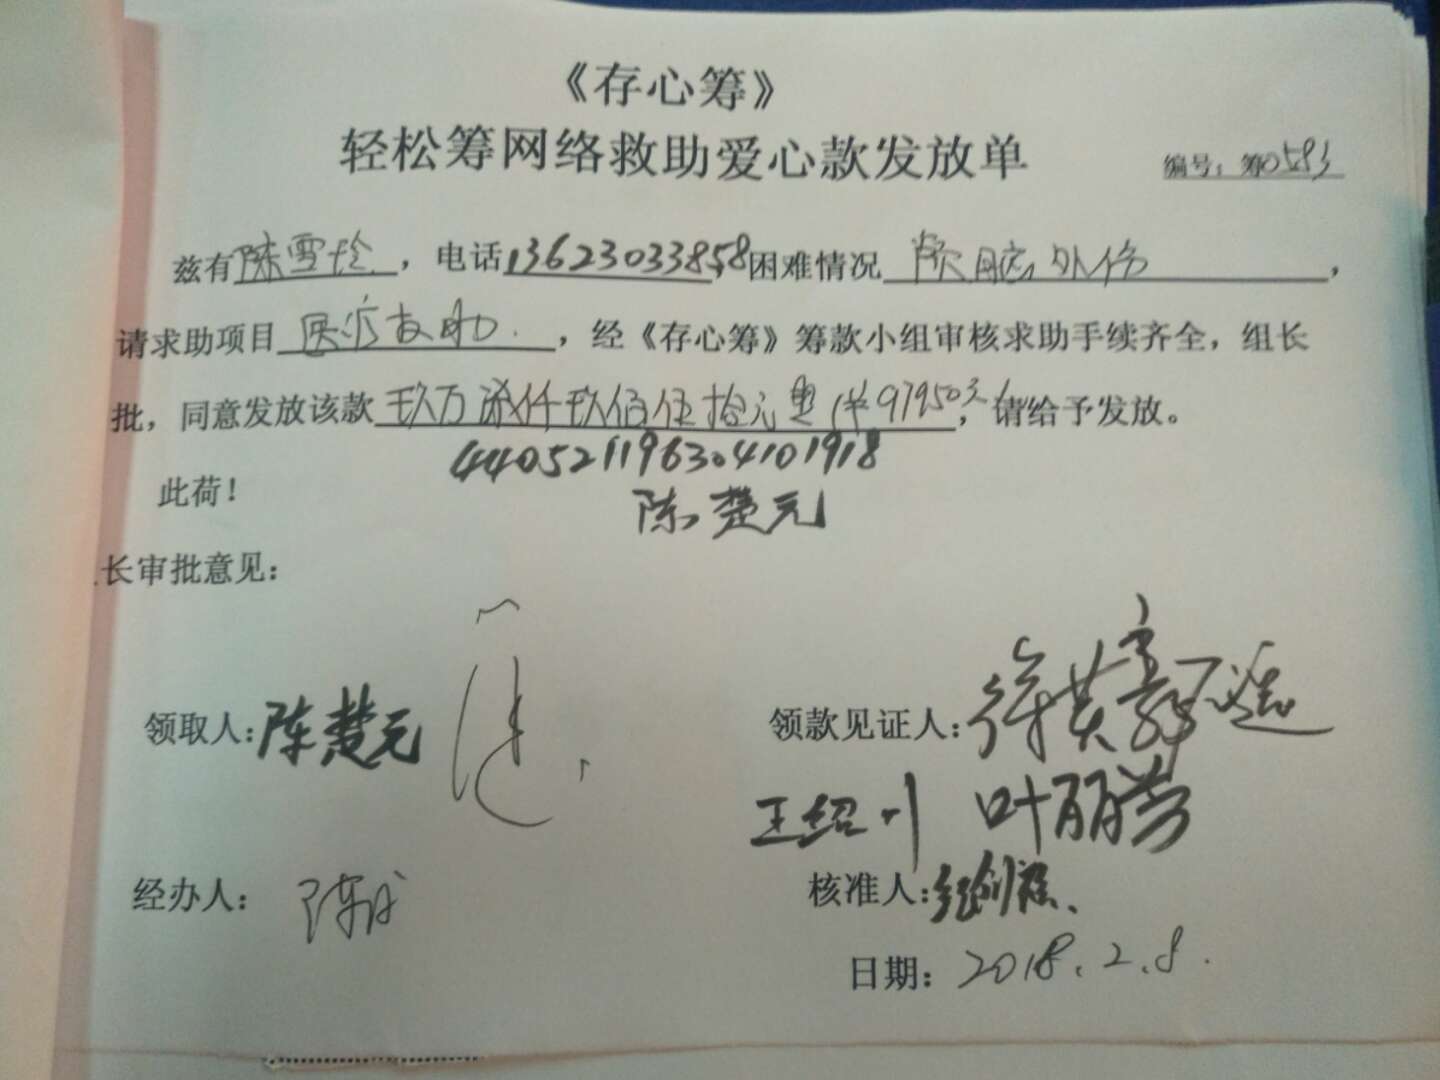 《存心筹》
轻松筹网络救助爱心款发放单
编号：筹0593
兹有陈雪玲，电话13623033858，困难情况颅脑外伤，
请求助项目医疗救助.，经《存心筹》筹款小组审核求助手续齐全，组长
批，同意发放该款玖万柒仟玖佰伍拾元整(¥97950元)，请给予发放。
440521196304101918
此荷！
陈楚元
长审批意见：
领取人：陈楚元
领款见证人：
王绍川 叶丽芬
经办人：
核准人：
日期：2018.2.8.